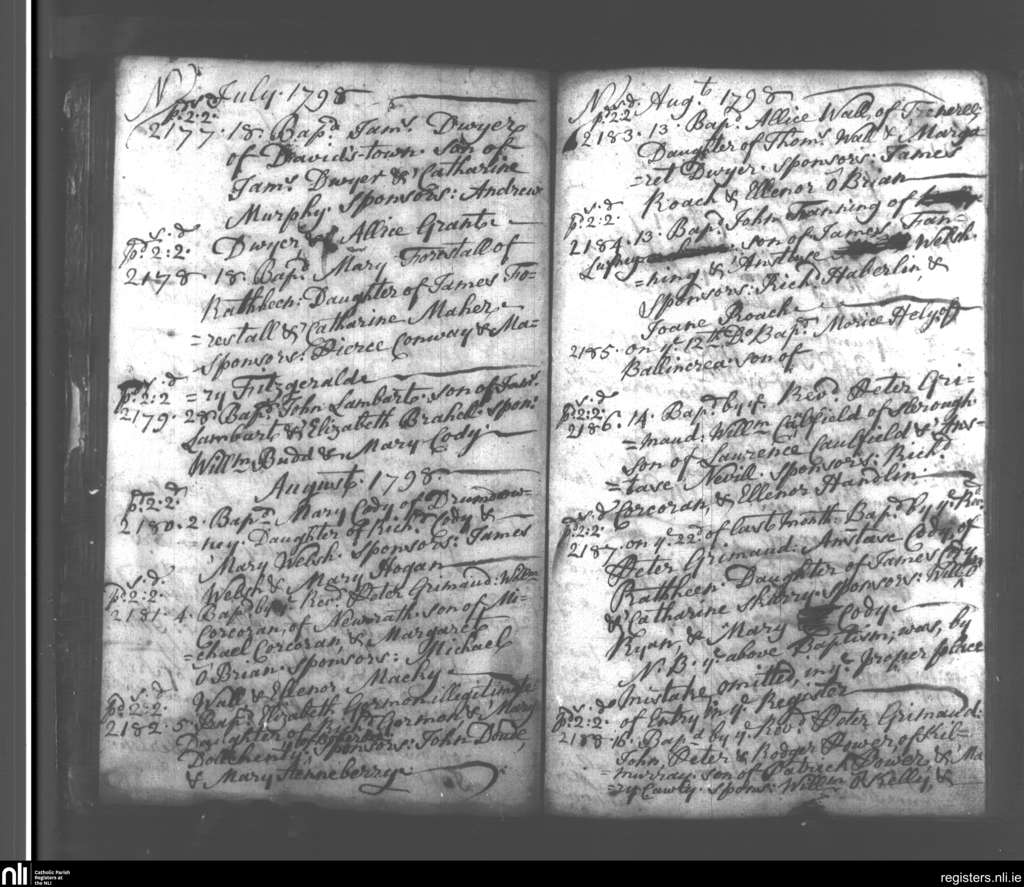 No. July. 1798
s. d
pd. 2:2.
2177. 18. Bapd. Jams. Dwyer
of David's-town. son of
Jams. Dwyer & Catharine
Murphy. Sponsors: Andrew
Dwyer & Allice Grant
s. d
pd. 2:2.
2178 18. Bapd. Mary Forestall of
Rathkeen: Daughter of James Fo=
=restall & Catharine Maher
Sponsors: Pierce Conway & Ma=
=ry Fitzgerald
s. d
pd. 2:2
2179. 28. Bapd. John Lambart. son of Jams.
Lambart & Elizabeth Brahell. Spon:
Willm. Budd & Mary Cody.
August. 1798
s. d
pd. 2:2.
2180. 2. Bapd. Mary Cody of Drumdow=
=ney: Daughter of Richd. Cody &
Mary Welsh. Sponsors: James
Welsh & Mary Hogan
s. d.
pd. 2:2.
2181. 4. Bapd. by ye Revd. Peter Grimaud: Willm.
Corcoran, of Newrath. son of Mi=
=chael Corcoran, & Margaret
O'Brian. Sponsors: Michael
Wall & Ellenor Macky
s. d.
pd. 2:2.
2182. 5. Bapd. Elizabeth Gormon illegitimate
Daughter of Gormon & Mary
Sponsors: John Doude,
& Mary Henneberry
No. Augt. 1798
s. d.
p. 2:2
2183. 13. Bapd. Allice Wall, of
Daughter of Thoms. Wall & Marga
=ret Dwyer. Sponsors: James
Roach & Ellenor O'Brian
s. d
pd. 2:2.
2184. 13. Bapd. John Fanning of
son of James Fan=
=ning & Anstase Welsh.
Sponsors: Richd. Haberlin, &
Joane Roach
2185. on ye 12th. Do. Bapd. Morice Hely of
Ballincrea: son of
s. d
pd. 2:2.
2186. 14. Bapd. by ye Revd. Peter Gri=
=maud: Willm. Caulfield of
son of Laurence Caulfield & Ans=
=tase Nevill. Sponsors: Richd.
Corcoran, & Ellenor Handlin.
s. d
pd. 2:2
2187. on ye 22d. of last month. Bapd. by ye Revd.
Peter Grimaud: Anstase Cody, of
Rathkeen: Daughter of James Cody
& Catharine Skerry. Sponsors: Willm.
Ryan, & Mary Cody
N. B. ye above Baptism, was, by
mistake omitted, in ye proper place
of Entry in ye Register
s. d
pd. 2:2.
2188 16. Bapd. by ye Revd. Peter Grimaud:
John, Peter & Rodger Power of Kil=
=murray. son of Patrick Power, & Ma
=ry Cawly. Spons: Willm. O'Kelly, &
nli
Catholic Parish
Registers at
the NLI
registers.nli.ie